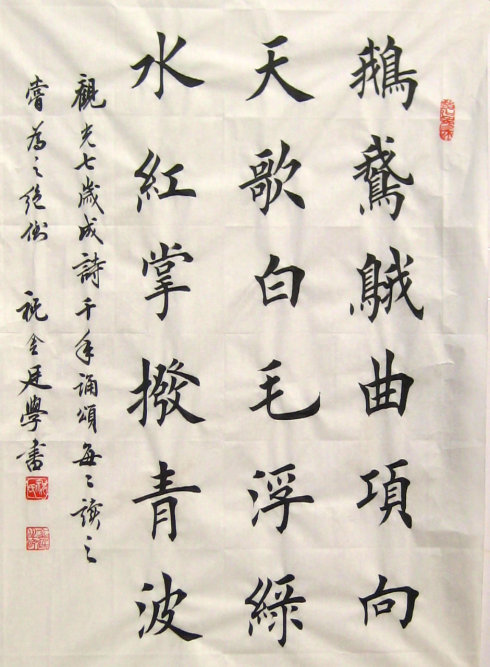 鵝鵞䳘曲項向
天歌白毛浮綠
水紅掌撥青波
觀光七歲成詩千年誦頌每々讀之
嘗為之絕倒 祝金廷學書